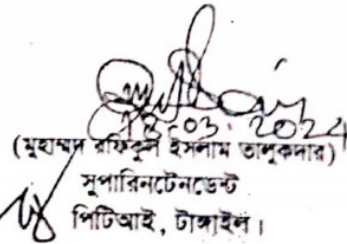 13.03.2024
(মুহাম্মদ রফিকুল ইসলাম তালুকদার)
সুপারিনটেনডেন্ট
পিটিআই, টাঙ্গাইল।